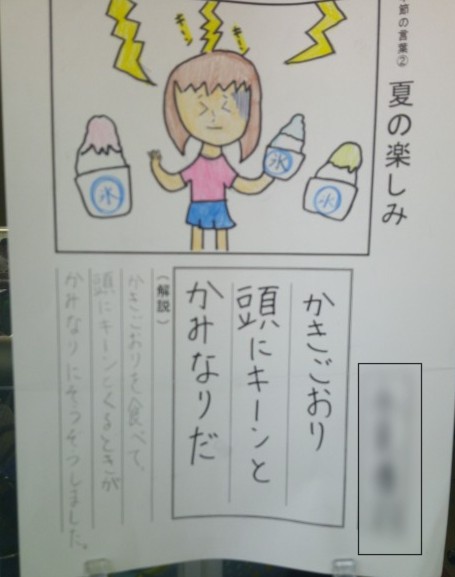 節の言葉②
夏の楽しみ
キーン
キーン
氷
氷
氷
かきごおり
頭にキーンと
かみなりだ
(解説)
かきごおりを食べて、
頭にキーンとくるときが
かみなりにそっくりでした。